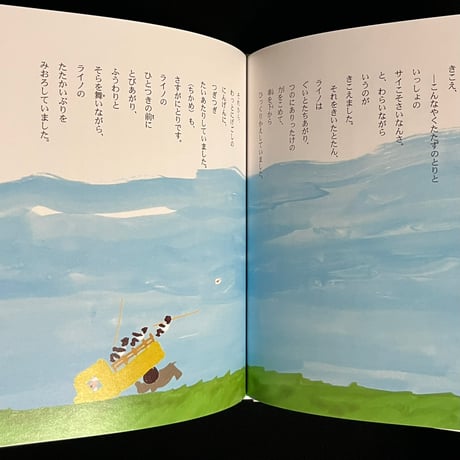 きこえ、
―こんなやくたたずのとりと
いっしょの
サイこそさいなんさ。
と、わらいながら
いうのが
きこえました。
それをきいたとたん、
ライノは
ぐいとたちあがり、
つのにありったけの
力をこめて、
車を下から
ひっくりかえしていました。
それから、
わっととびだしの
にんげんに、
つぎつぎ
たいあたりしていました。
(ちかめ)も、
さすがにとりです。
ライノの
ひとつきの前に
とびあがり、
ふうわりと
そらを舞いながら、
ライノの
たたかいぶりを
みおろしていました。